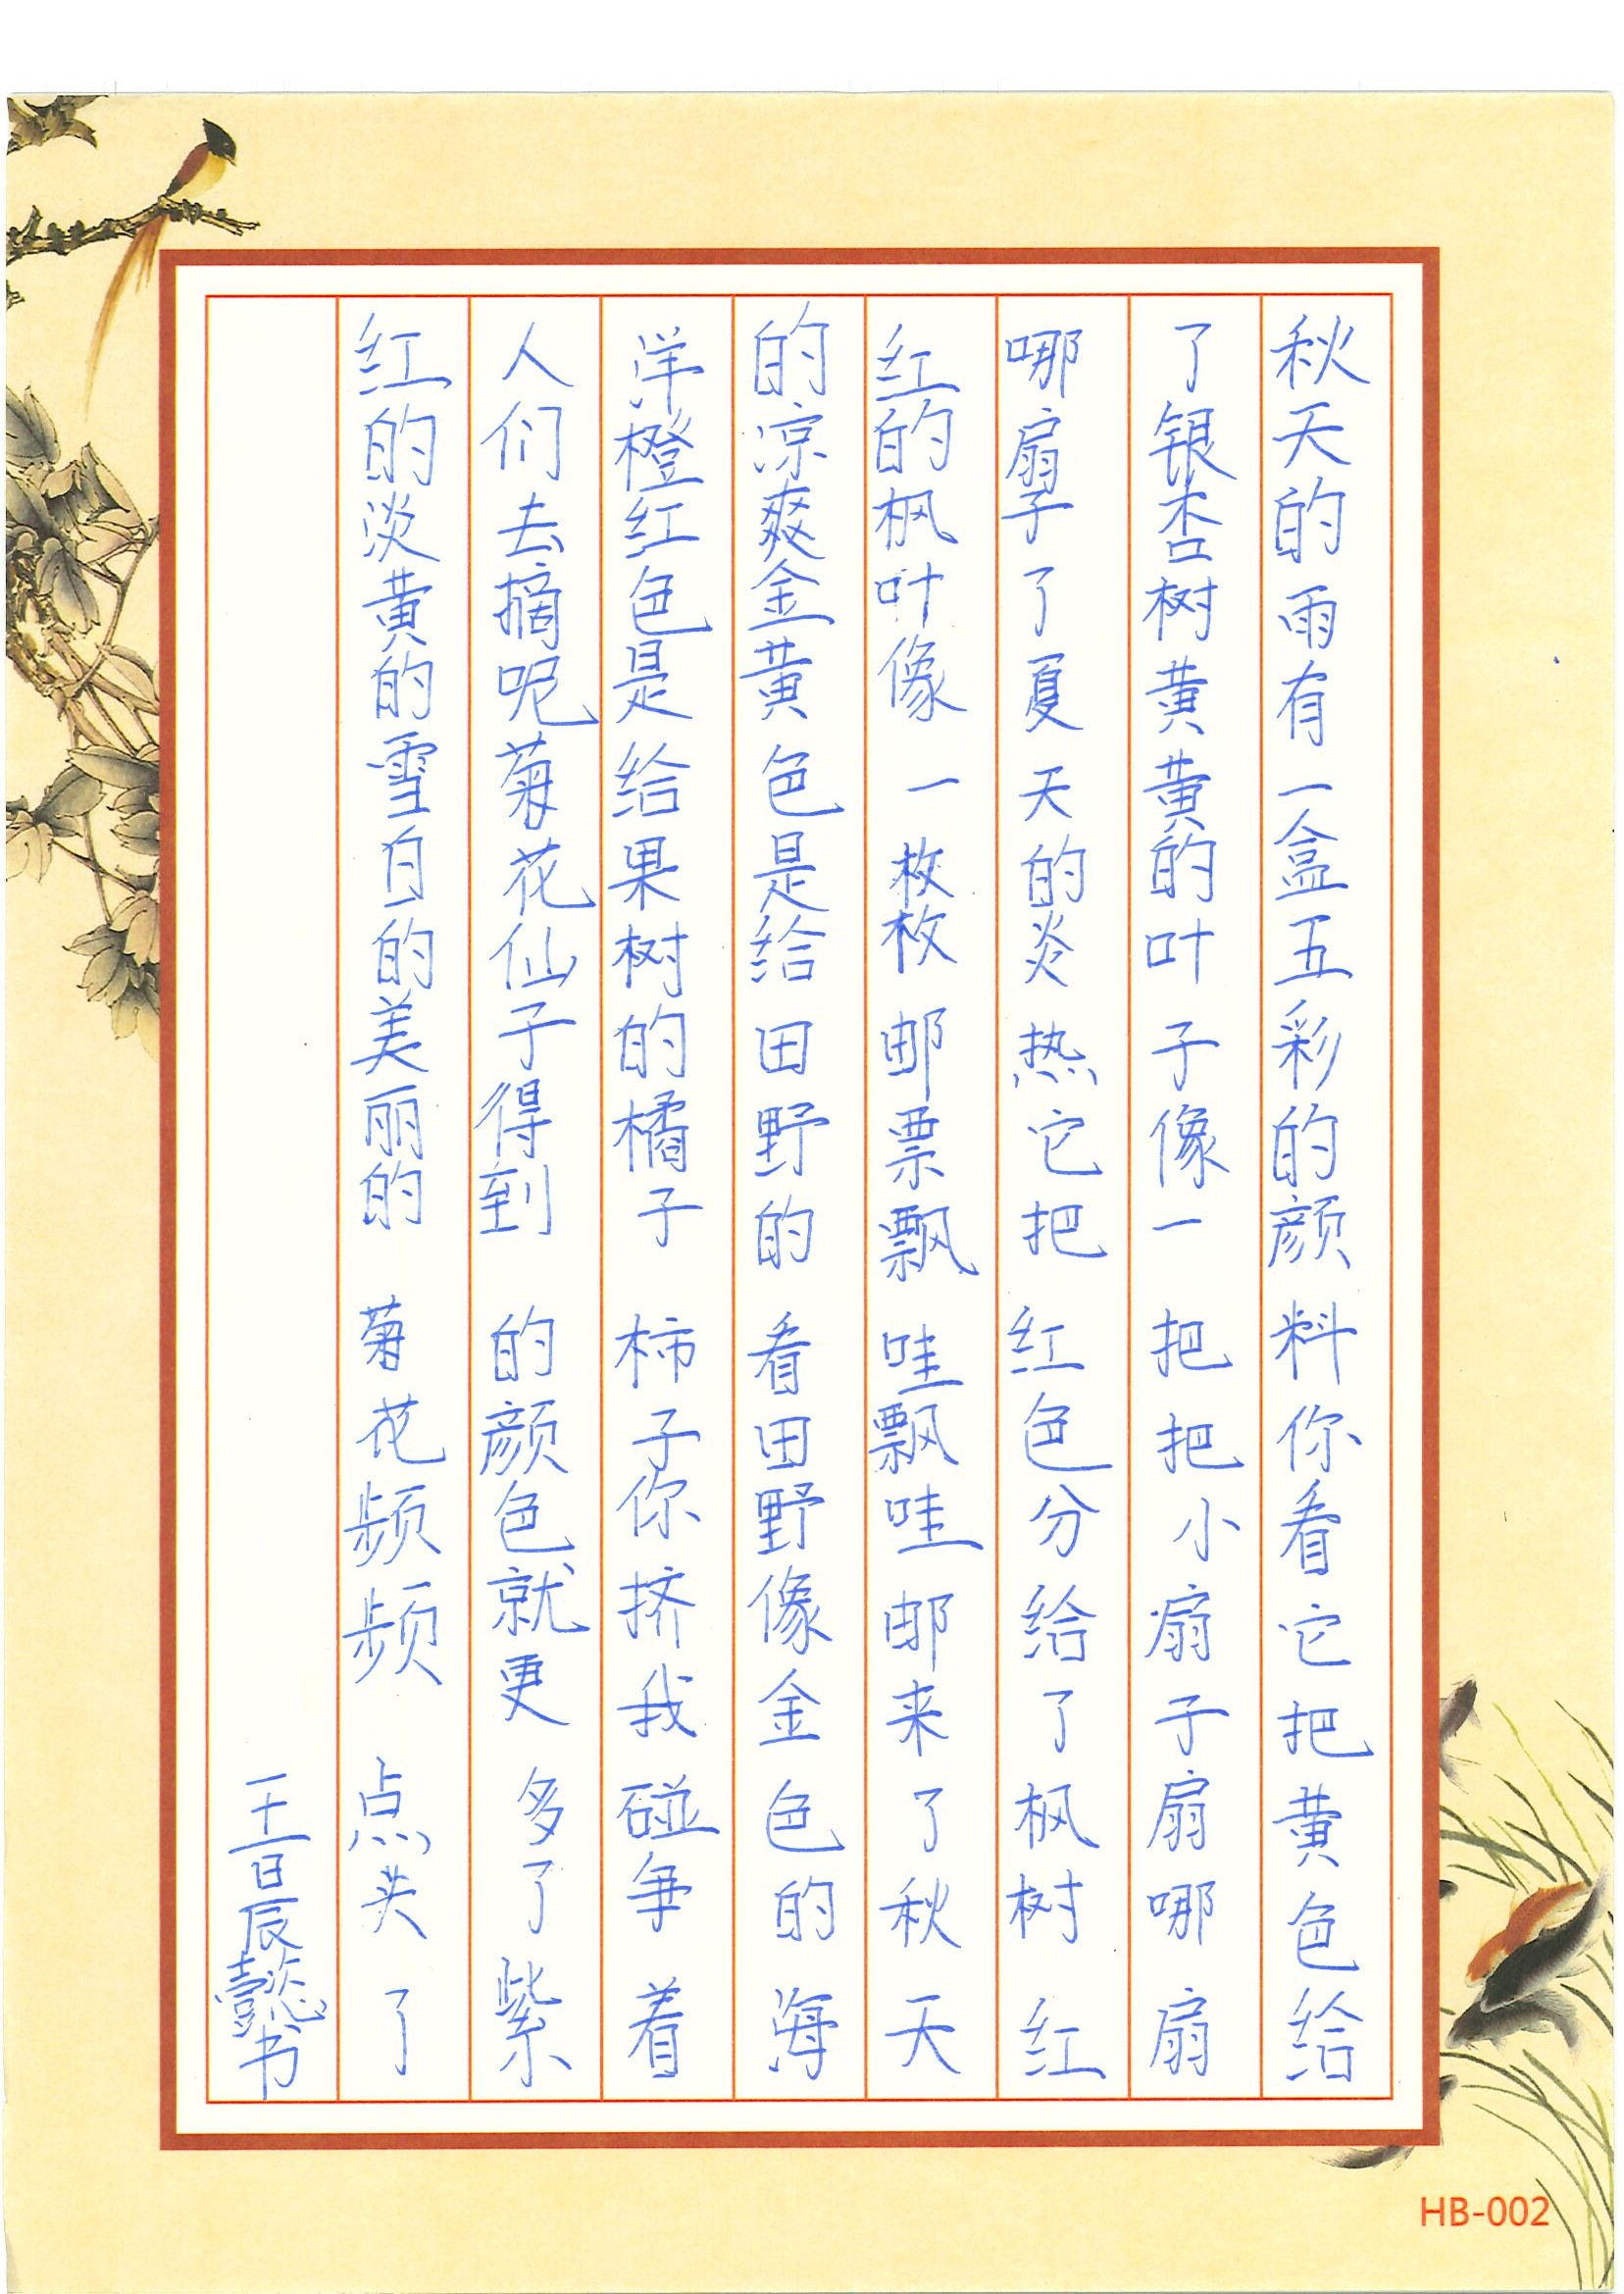 秋天的雨有一盒五彩的颜料你看它把黄色给
了银杏树黄黄的叶子像一把把小扇子扇哪扇
哪扇子了夏天的炎热它把红色分给了枫树红
红的枫叶像一枚枚邮票飘哇飘哇邮来了秋天
的凉爽金黄色是给田野的看田野像金色的海
洋橙红色是给果树的橘子柿子你挤我碰争着
人们去摘呢菊花仙子得到的颜色就更多了紫
红的淡黄的雪白的美丽的菊花频频点头了
王日辰懿书
HB-002